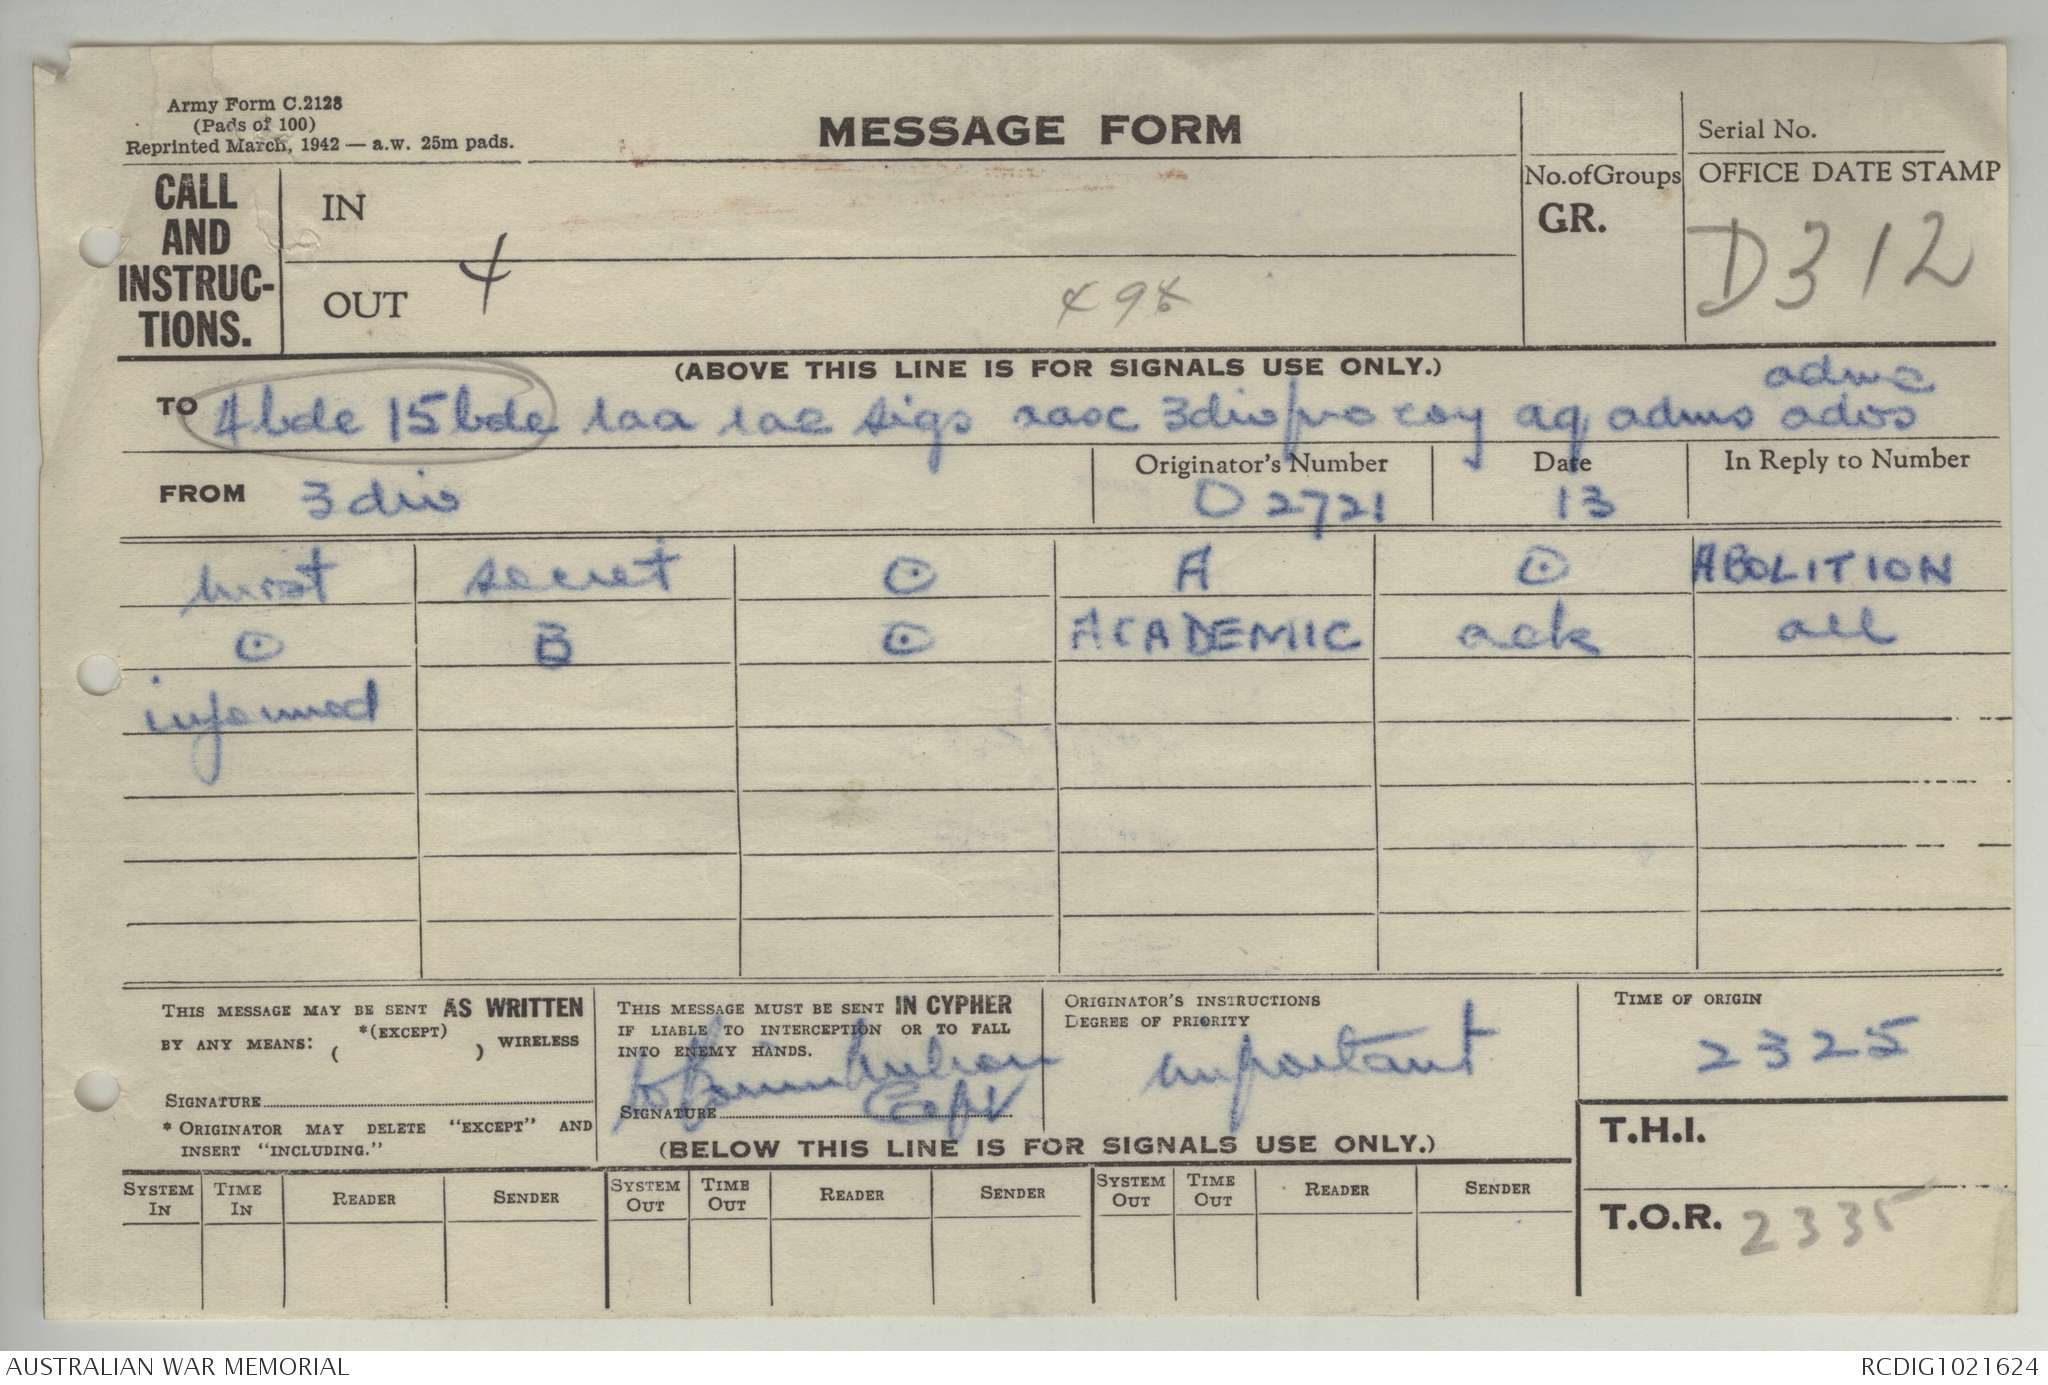 Army Form C.2128
(Pads of 100)
Reprinted March, 1942 — a.w. 25m pads.
MESSAGE FORM
Serial No.
CALL
AND
INSTRUC-
TIONS.
IN
OUT 4
No. of Groups
GR.
OFFICE DATE STAMP
D312
(ABOVE THIS LINE IS FOR SIGNALS USE ONLY.)
admc
TO 4 bde 15 bde raa rae sigs aasc 3 div pro coy aq adms advs
FROM 3 div
Originator's Number
O 2721
Date
13
In Reply to Number
most secret ⊙ A ⊙ ABOLITION
⊙ B ⊙ ACADEMIC ack all
informed
THIS MESSAGE MAY BE SENT AS WRITTEN
BY ANY MEANS: *(EXCEPT) ( ) WIRELESS
SIGNATURE
* ORIGINATOR MAY DELETE "EXCEPT" AND
INSERT "INCLUDING."
THIS MESSAGE MUST BE SENT IN CYPHER
IF LIABLE TO INTERCEPTION OR TO FALL
INTO ENEMY HANDS.
SIGNATURE Capt
ORIGINATOR'S INSTRUCTIONS
DEGREE OF PRIORITY
important
TIME OF ORIGIN
2325
(BELOW THIS LINE IS FOR SIGNALS USE ONLY.)
T.H.I.
T.O.R. 2335
SYSTEM IN TIME IN READER SENDER SYSTEM OUT TIME OUT READER SENDER SYSTEM OUT TIME OUT READER SENDER
AUSTRALIAN WAR MEMORIAL
RCDIG1021624